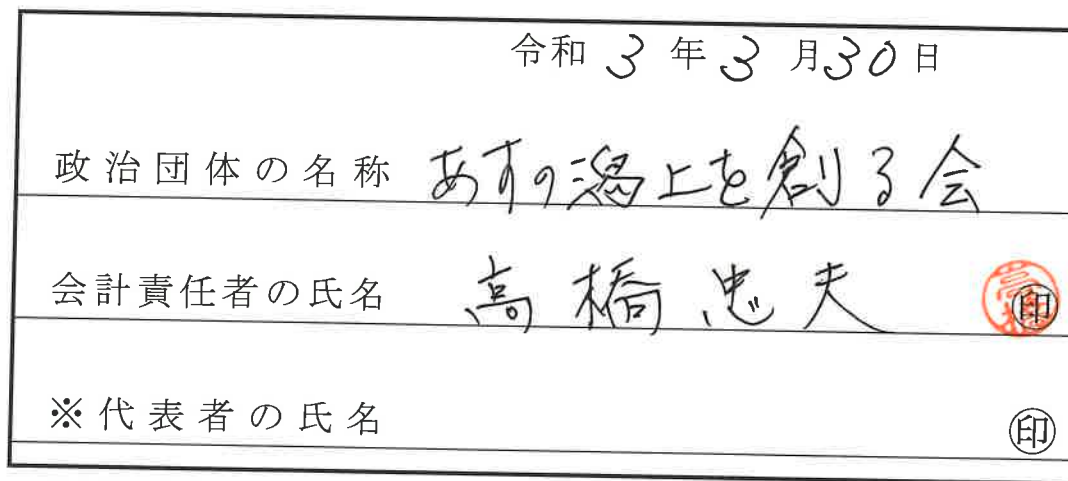 令和 3 年 3 月 30 日
政治団体の名称 あすの潟上を創る会
会計責任者の氏名 高橋忠夫 印
※代表者の氏名 印